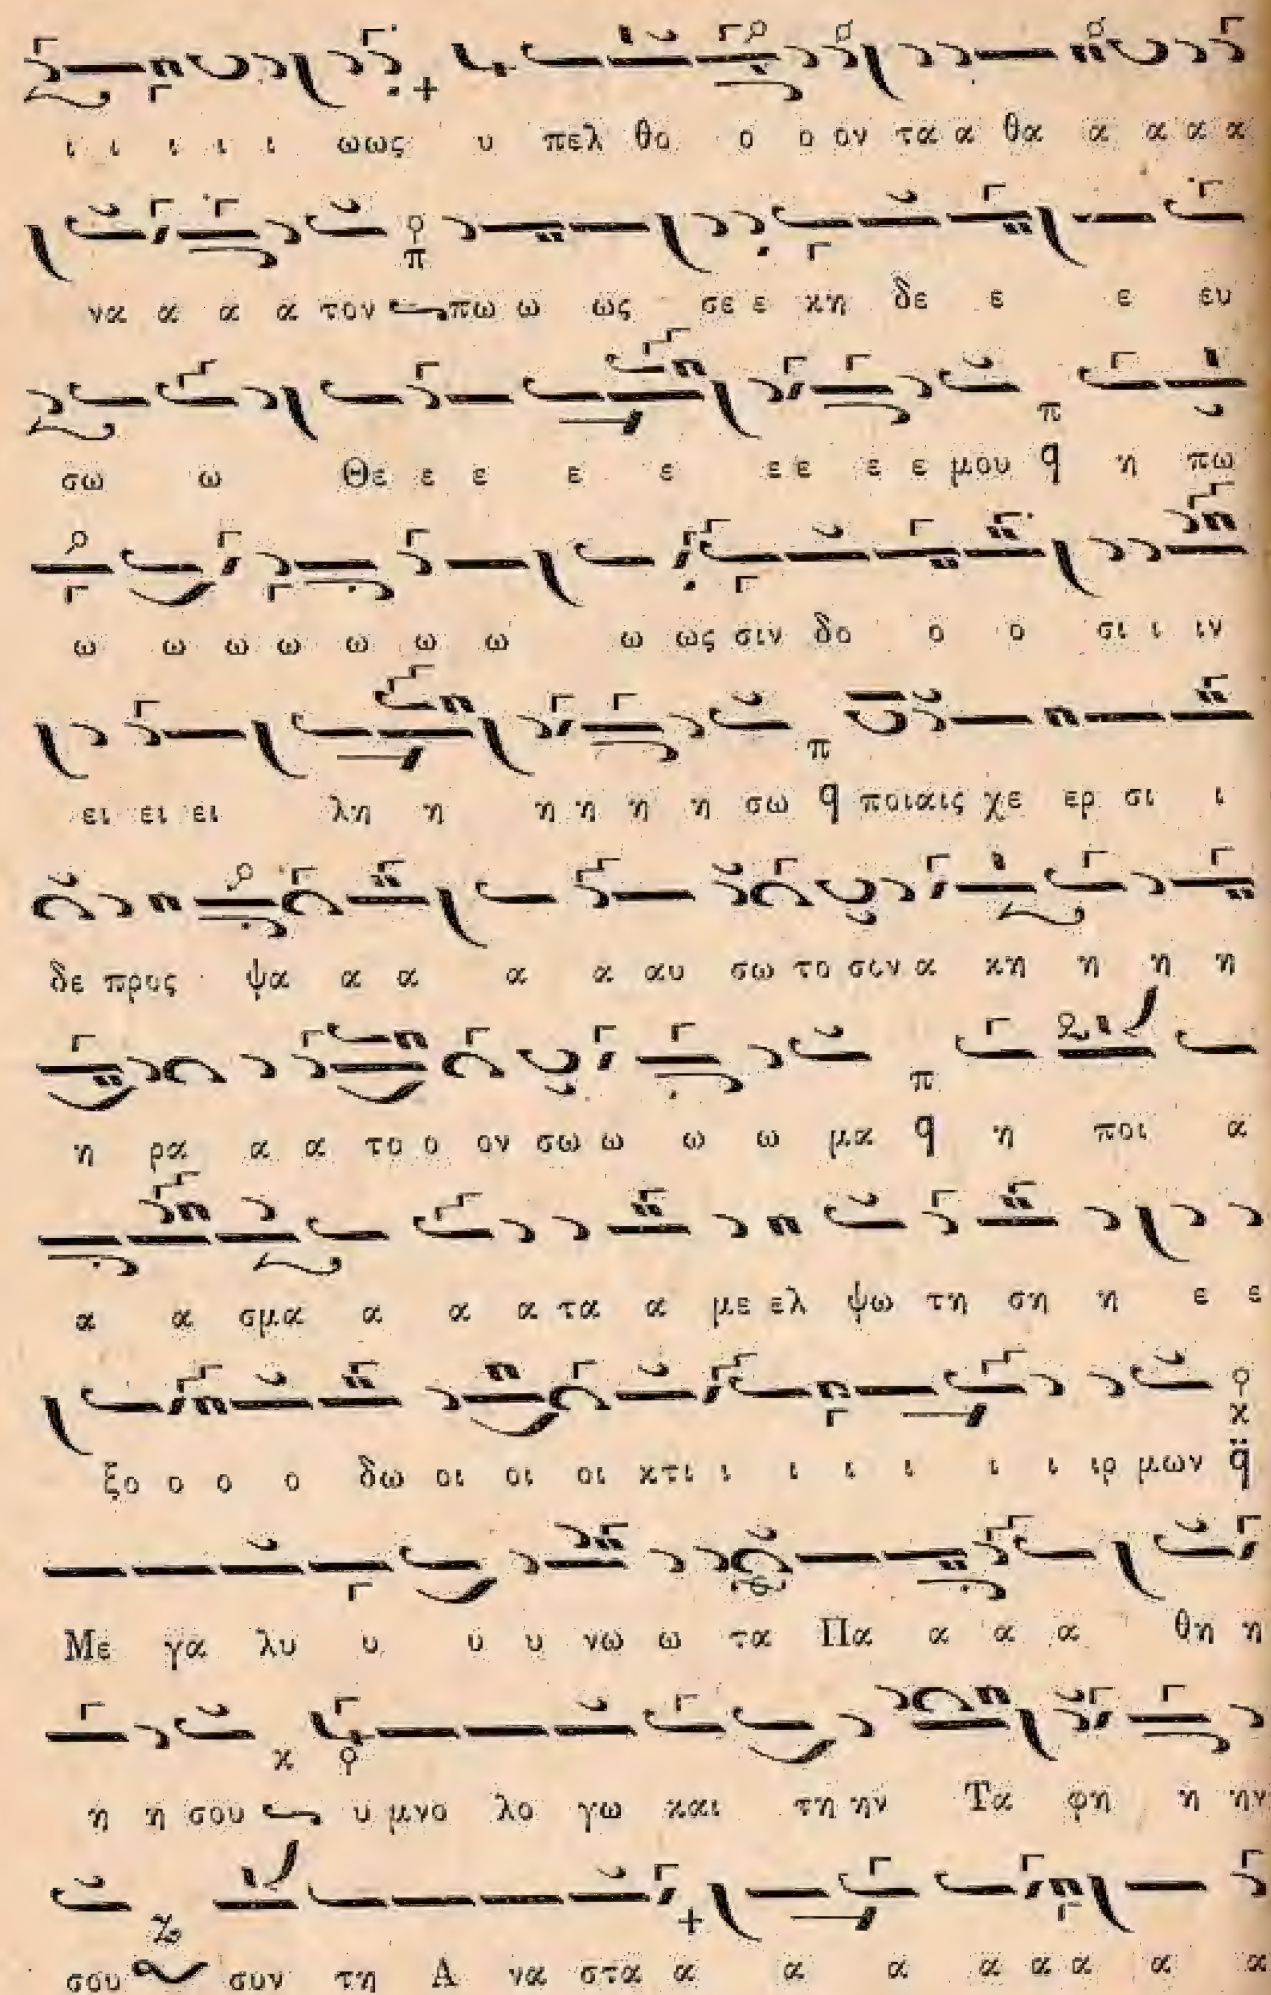 ι ι ι ι ι ωως υ πελ θο ο ο ον τα α θα α α α α
να α α α τον πω ω ως σε ε κη δε ε ε ευ
σω ω Θε ε ε ε ε ε ε ε ε μου η πω
ω ω ω ω ω ω ω ω ως σιν δο ο ο σι ι ιν
ει ει ει λη η η η η η σω ποιαις χε ερ σι ι
δε προς ψα α α α α αυ σω το σον α κη η η η
η ρα α α το ο ον σω ω ω ω μα η ποι α
α α σμα α α α τα α με ελ ψω τη ση η ε ε
ξο ο ο ο δω οι οι οι κτι ι ι ι ι ι ι ιρ μων
Με γα λυ υ υ υ νω ω τα Πα α α α θη η
η η σου υ μνο λο γω και τη ην Τα φη η ην
σου συν τη Α να στα α α α α α α α α